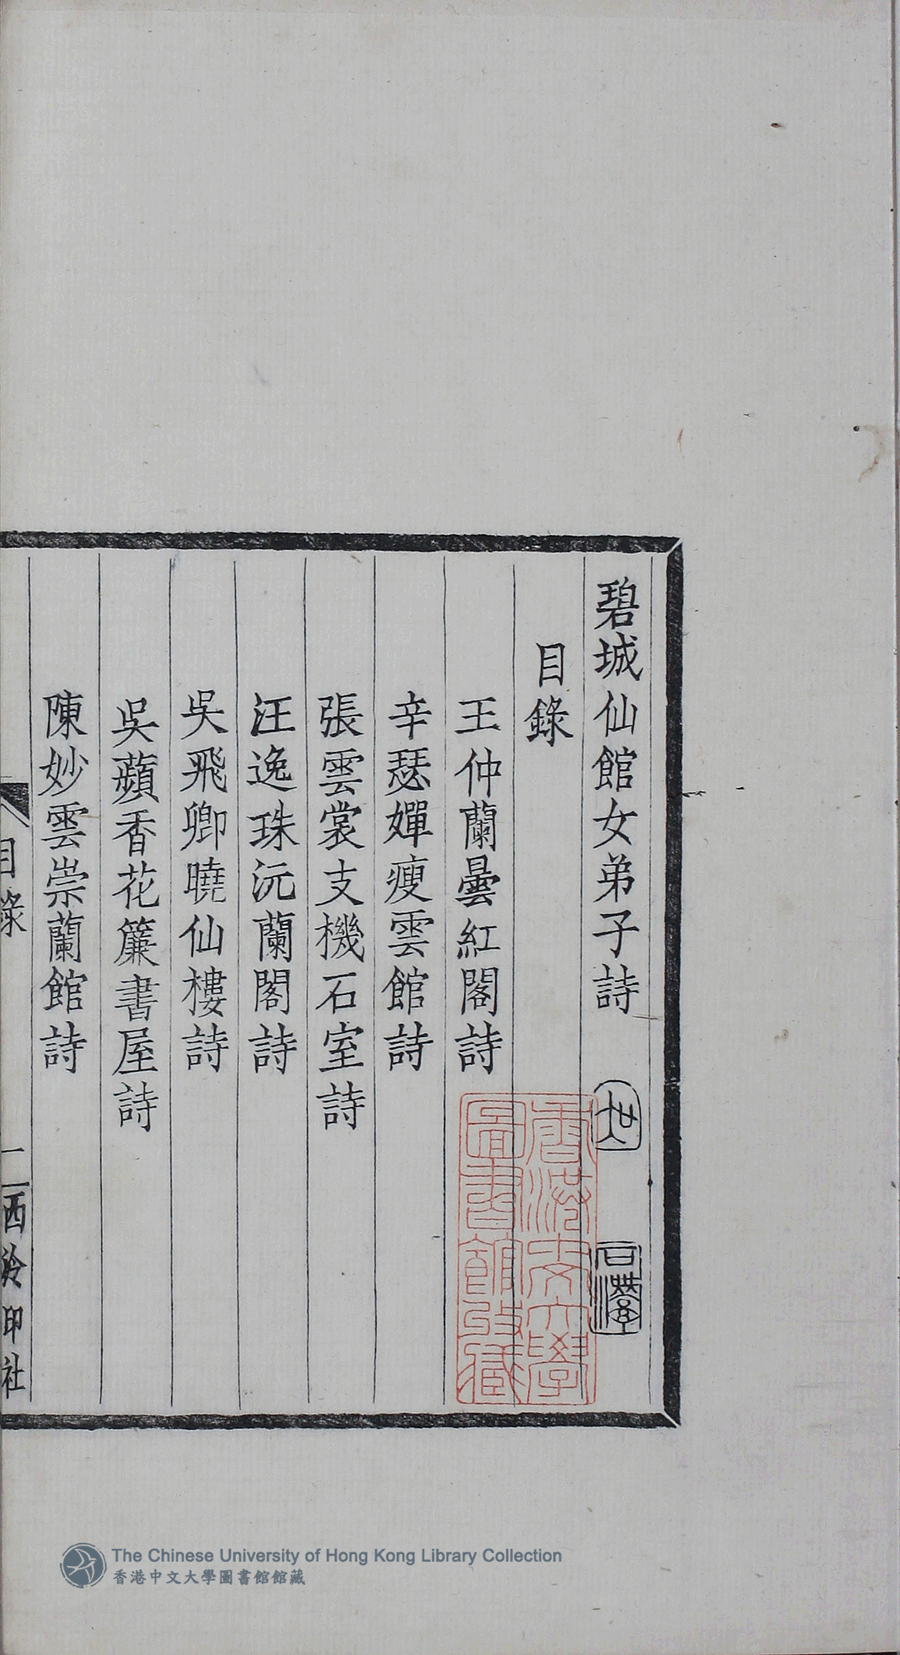 碧城仙館女弟子詩
目錄
王仲蘭曇紅閣詩
辛瑟嬋瘦雲館詩
張雲裳支機石室詩
汪逸珠沅蘭閣詩
吳飛卿曉仙樓詩
吳蘋香花簾書屋詩
陳妙雲崇蘭館詩
目錄
一
西泠印社
香港中文大學
圖書館收藏
The Chinese University of Hong Kong Library Collection
香港中文大學圖書館館藏